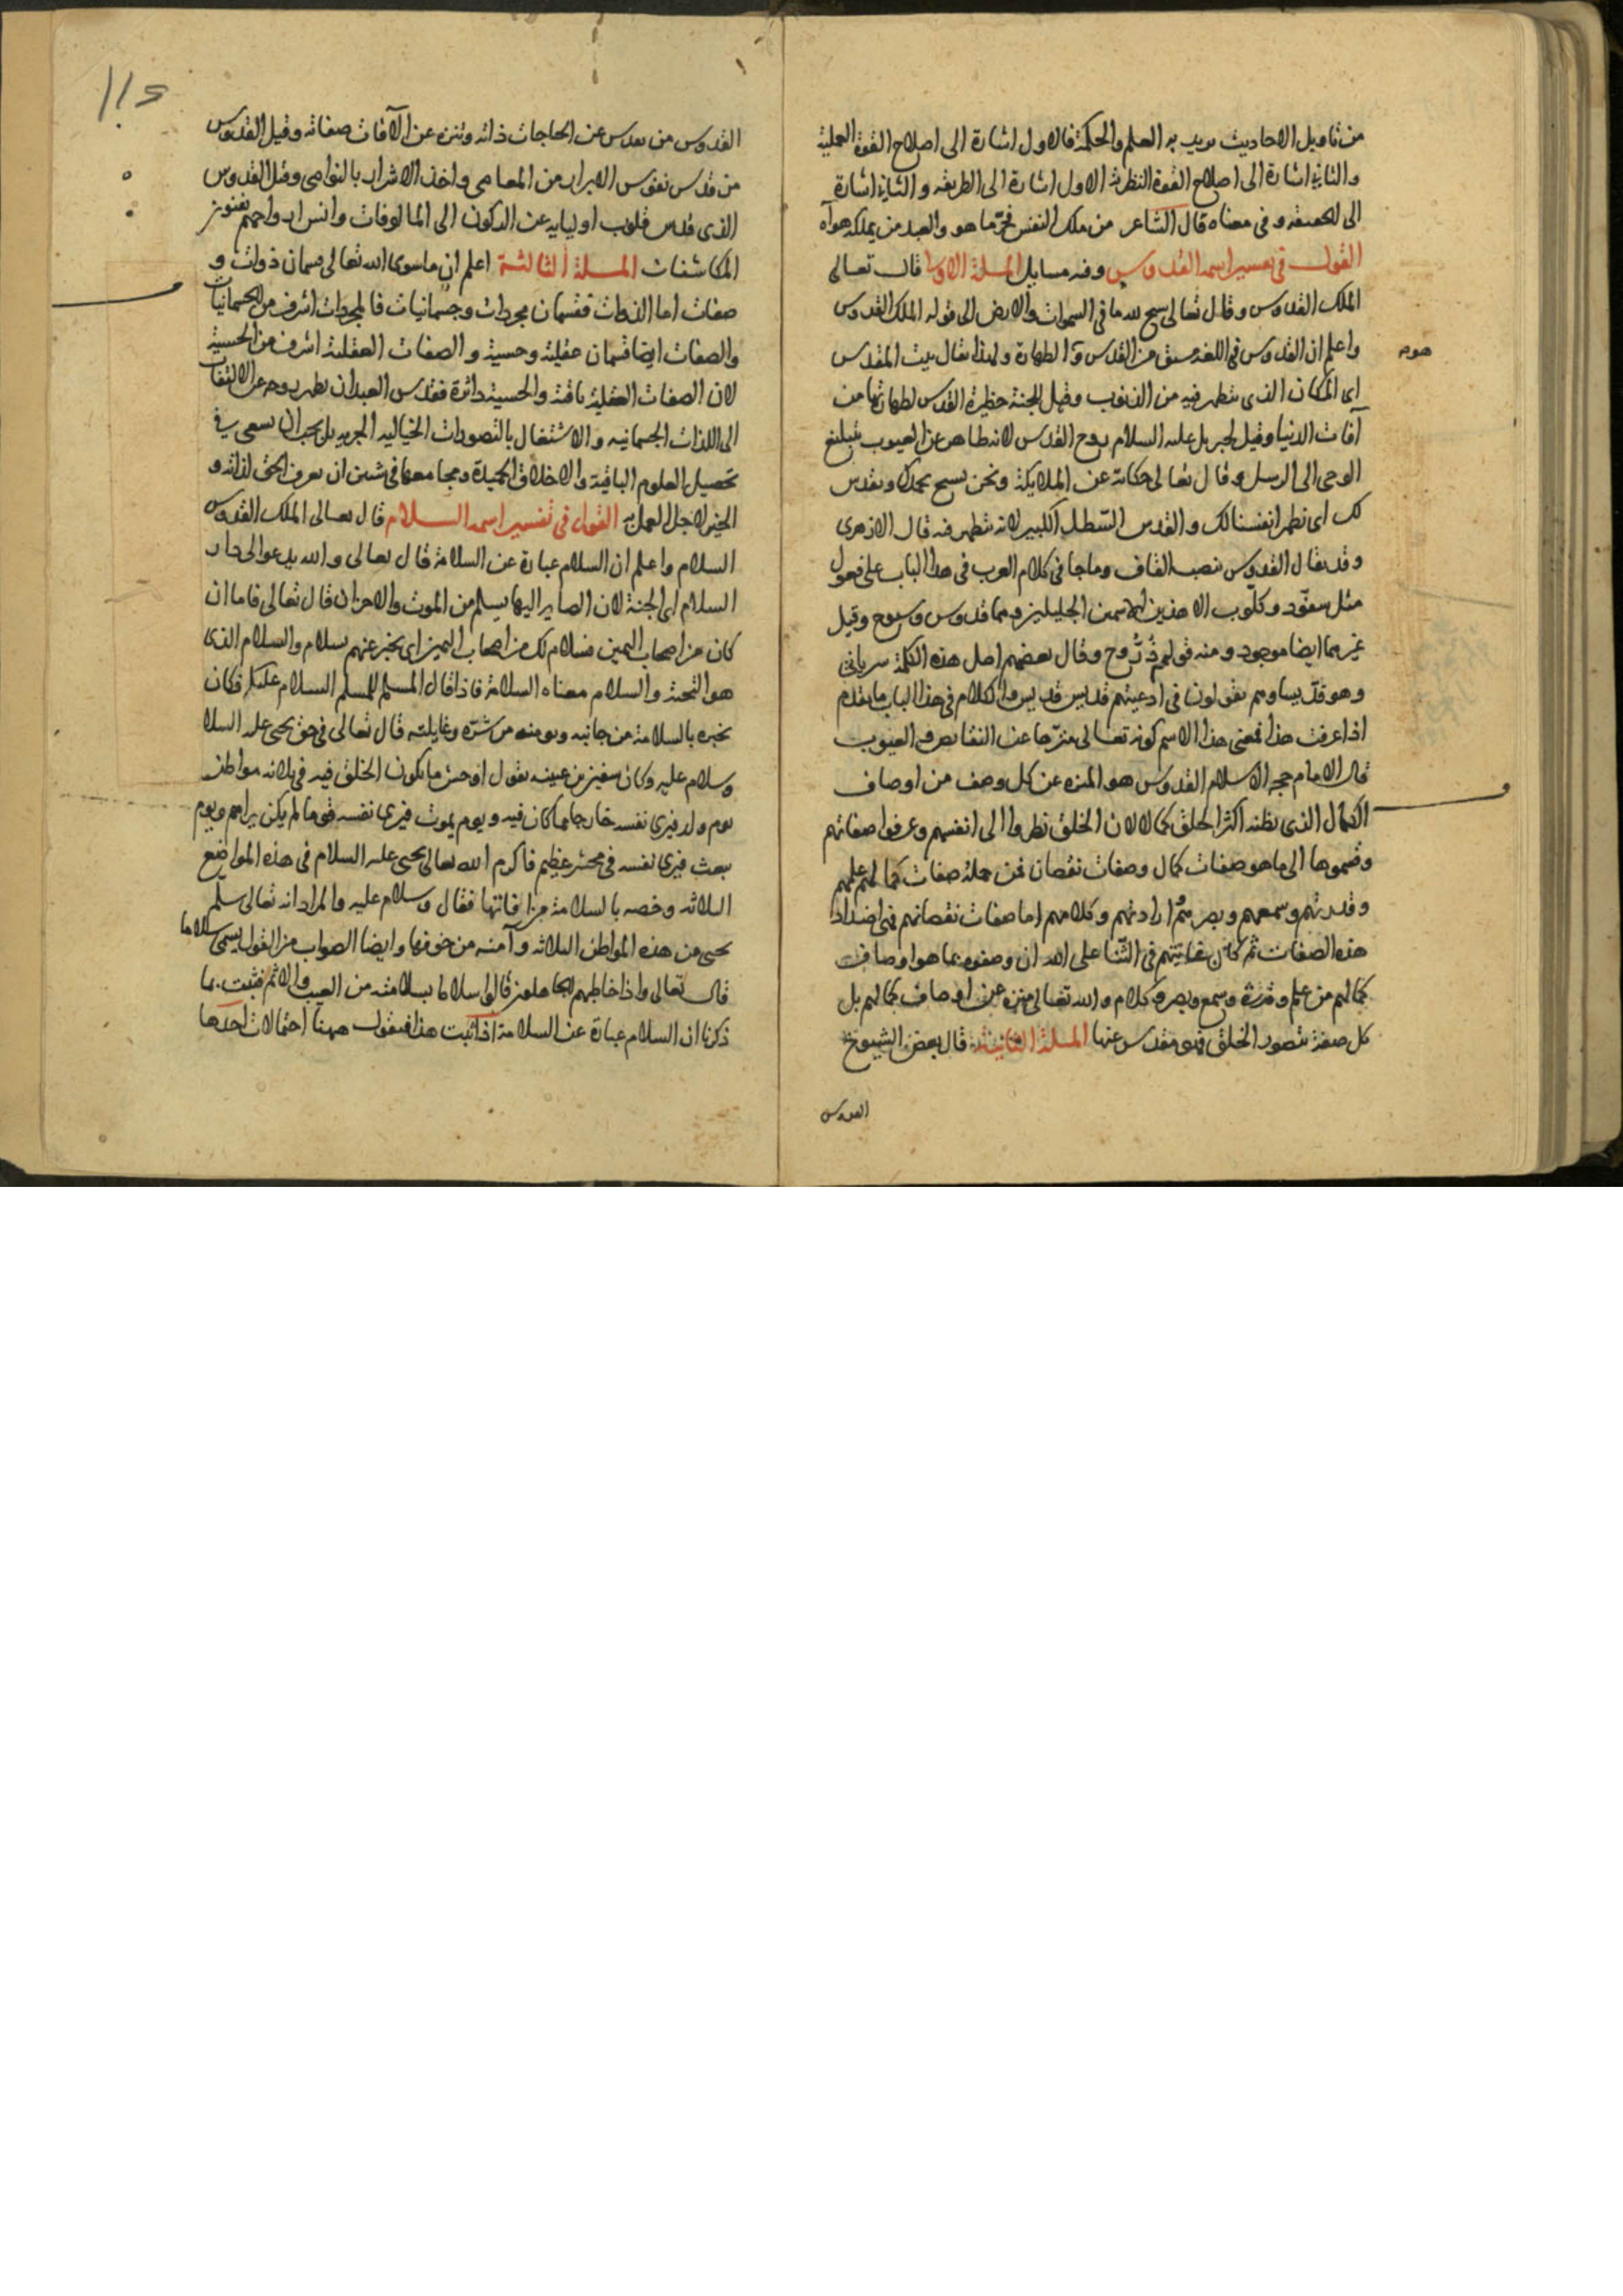 من تاويل الاحاديث يريد به العلم والحكمة فالاول اشارة الى اصلاح القوة العملية
والثانى اشارة الى اصلاح القوة النظرية الاول اشارة الى الطريقه والثانى اشارة
الى الحقيقه وفى معناه قال الشاعر من ملك النفس فحرّ ما هو والعبد من يملكه هواه
القول فى تفسير اسمه القدوس وفيه مسايل المسلة الاولى قال تعالى
الملك القدوس وقال تعالى يسبح لله ما فى السموات والارض الى قوله الملك القدوس
واعلم ان القدوس فى اللغة مشتق من القدس وهو الطهارة ولهذا يقال بيت المقدس
هو
اى المكان الذى يتطهر فيه من الذنوب وقيل للجنة حظيرة القدس لطهارتها من
آفات الدنيا وقيل لجبريل عليه السلام روح القدس لانه طاهر عن العيوب بتبليغ
الوحى الى الرسل وقال تعالى حكاية عن الملايكة ونحن نسبح بحمدك ونقدس
لك اى نطهر انفسنا لك والقدس السّطل الكبير لانه يتطهر فيه قال الازهرى
وقد يقال القدوس بنصب القاف وما جا فى كلام العرب فى هذا الباب على فعول
مثل سفّود وكلّوب الا هذين الاسمين الجليلين وهما قدوس وسبوح وقيل
غيرهما ايضا موجود ومنه قولهم ذُرُّوح وقال بعضهم اصل هذه الكلمة سريانى
وهو قدّيسا وهم يقولون فى ادعيتهم قديس قديس والكلام فى هذا الباب ما تقدم
اذا عرفت هذا فمعنى هذا الاسم كونه تعالى منزّها عن النقايص والعيوب
قال الامام حجه الاسلام القدوس هو المنزه عن كل وصف من اوصاف
الكمال الذى يظنه اكثر الخلق كمالا لان الخلق نظروا الى انفسهم وعرفوا صفاتهم
وقسموها الى ما هو صفات كمال وصفات نقصان فمن جملة صفات كمالهم علمهم
وقدرتهم وسمعهم وبصرهم وارادتهم وكلامهم اما صفات نقصانهم فهى اضداد
هذه الصفات ثم كان غايتهم فى الثنا على الله ان وصفوه بما هو اوصاف
كمالهم من علم وقدرة وسمع وبصر وكلام والله تعالى منزه عن اوصاف كمالهم بل
كل صفة تتصور الخلق فهو مقدس عنها المسلة الثانية قال بعض الشيوخ
القدوس
القدوس من تقدس عن الحاجات ذاته وتنزه عن الآفات صفاته وقيل القدوس
من قدس نفوس الابرار من المعاصى واخذ الاشرار بالنواصى وقيل القدوس
الذى قدس قلوب اوليايه عن الركون الى المالوفات وانس ارواحهم بفنون
المكاشفات المسلة الثالثة اعلم ان ما سوى الله تعالى قسمان ذوات و
صفات اما الذوات فقسمان مجردات وجسمانيات فالمجردات اشرف من الجسمانيات
والصفات ايضا قسمان عقلية وحسية والصفات العقلية اشرف من الحسية
لان الصفات العقلية باقية والحسية داثرة فقدس العبد ان يطهر روحه عن الالتفات
الى اللذات الجسمانيه والاشتغال بالتصورات الخياليه بل يجب ان يسعى فى
تحصيل العلوم الباقية والاخلاق الحميدة ومجامعها فى شين ان يعرف الحق لذاته و
الخير لاجل العمل به القول فى تفسير اسمه السلام قال تعالى الملك القدوس
السلام واعلم ان السلام عبارة عن السلامة قال تعالى والله يدعوا الى دار
السلام اى الجنة لان الصاير اليها يسلم من الموت والاحزان قال تعالى فاما ان
كان من اصحاب اليمين فسلام لك من اصحاب اليمين اى يخبر عنهم بسلام والسلام الذى
هو التحية والسلام معناه السلامة فاذا قال المسلم للمسلم السلام عليكم فكانه
يخبره بالسلامة من جانبه ويومنه من شرّه وغايلته قال تعالى فى حق يحيى عليه السلا
وسلام عليه وكان سفين بن عيينه يقول اوحش ما يكون الخلق فيه فى ثلاثه مواطن
يوم ولد فيرى نفسه خارجا مما كان فيه ويوم يموت فيرى نفسه قوما لم يكن يراهم ويوم
يبعث فيرى نفسه فى محشر عظيم فاكرم الله تعالى يحيى عليه السلام فى هذه المواضع
الثلاثه وخصه بالسلامة من افاتها فقال وسلام عليه والمراد انه تعالى سلم
يحيى من هذه المواطن الثلاثه وآمنه من خوفها وايضا الصواب من القول يسمى سلاما
قال تعالى واذا خاطبهم الجاهلون قالوا سلاما لسلامته من العيب والاثم فثبت بما
ذكرنا ان السلام عبارة عن السلامة اذا ثبت هذا فنقول ههنا احتمالات احدها